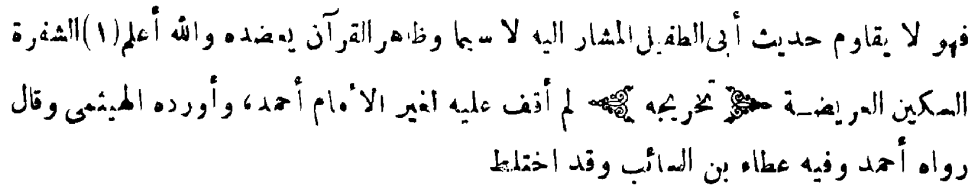 فهو لا يقاوم حديث أبى الطفيل المشار اليه لا سيما وظاهر القرآن يعضده والله أعلم (١) الشفرة
السكين العريضة ﴿ تخريجه ﴾ لم أقف عليه لغير الامام أحمد، وأورده الهيثمى وقال
رواه أحمد وفيه عطاء بن السائب وقد اختلط